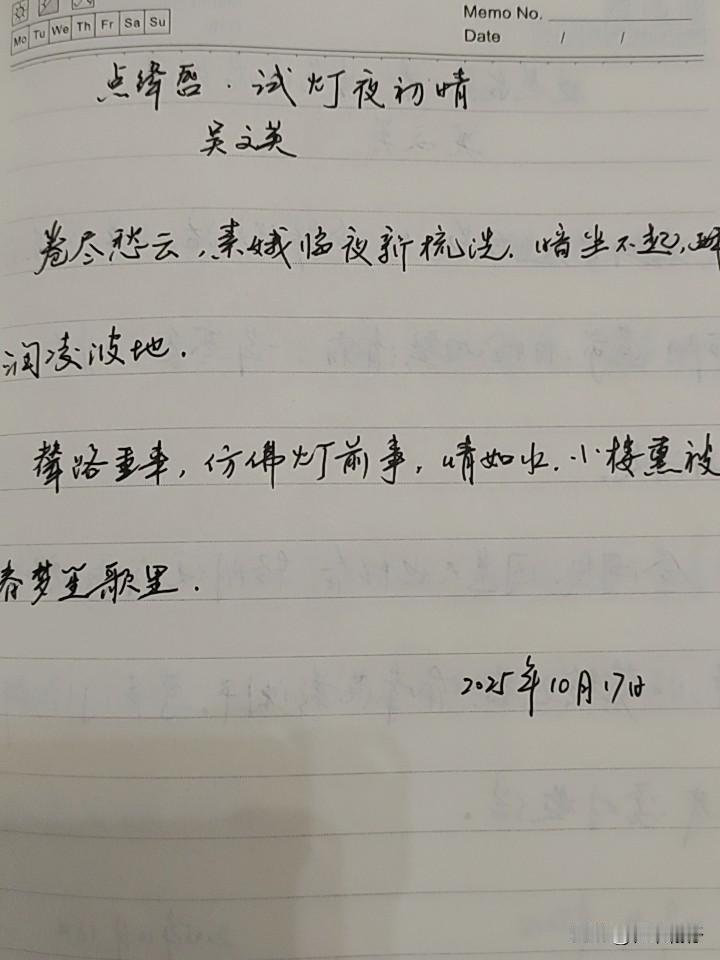 Mo Tu We Th Fr Sa Su
Memo No.
Date / /
点绛唇·试灯夜初晴
吴文英
卷尽愁云,素娥临夜新梳洗.暗尘不起,酥
润凌波地.
辇路重来,仿佛灯前事,情如水.小楼熏被
春梦笙歌里.
2025年10月17日